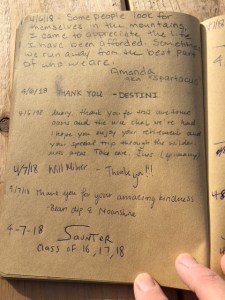 4/6/18 - Some people look for
themselves in the mountains
I came to appreciate the life
I have been afforded. Sometimes
we run away from the best parts
of who we are.
Amanda
aka "Spartacus"
4/6/18 THANK YOU - DESTINI
4/6/18 thank you for this awesome
and the nice chat we've had
I hope you enjoy your retirement and
your special trip through the
areas. Take care, Ines (Germany)
4/7/18 Will Milner - Thank ya!!!
4/7/18 Thank you for your amazing kindness
- Bean dip & Moonshine
4-7-18 SAUNTER
CLASS OF 16, 17, 18